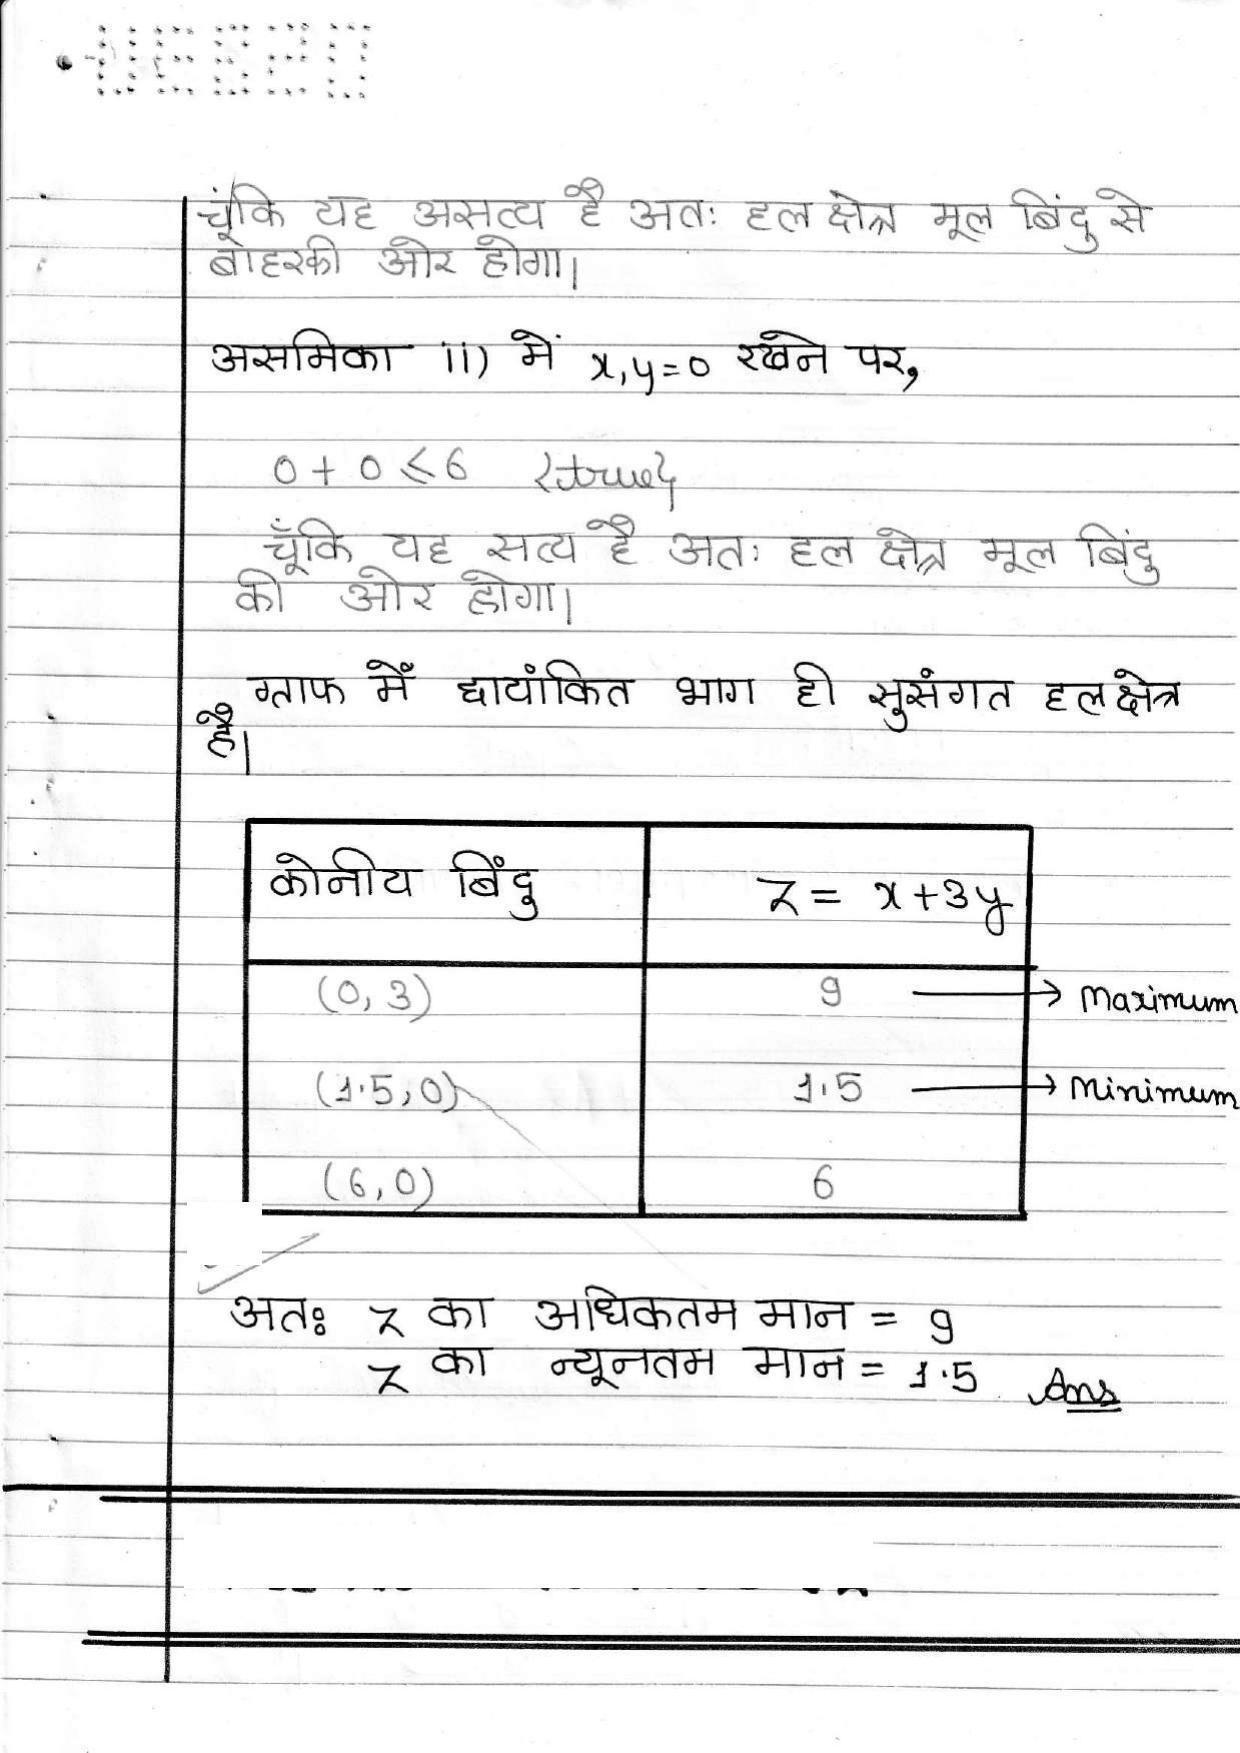 चूंकि यह असत्य है अतः हल क्षेत्र मूल बिंदु से
बाहरकी ओर होगा।
असमिका ii) में x,y=0 रखने पर,
0 + 0 ≤ 6 {true}
चूँकि यह सत्य है अतः हल क्षेत्र मूल बिंदु
की ओर होगा।
ग्राफ में छायांकित भाग ही सुसंगत हल क्षेत्र
है।
कोनीय बिंदु Z = x+3y
(0, 3) 9 → Maximum
(1.5, 0) 1.5 → Minimum
(6, 0) 6
अतः Z का अधिकतम मान = 9
Z का न्यूनतम मान = 1.5 Ans